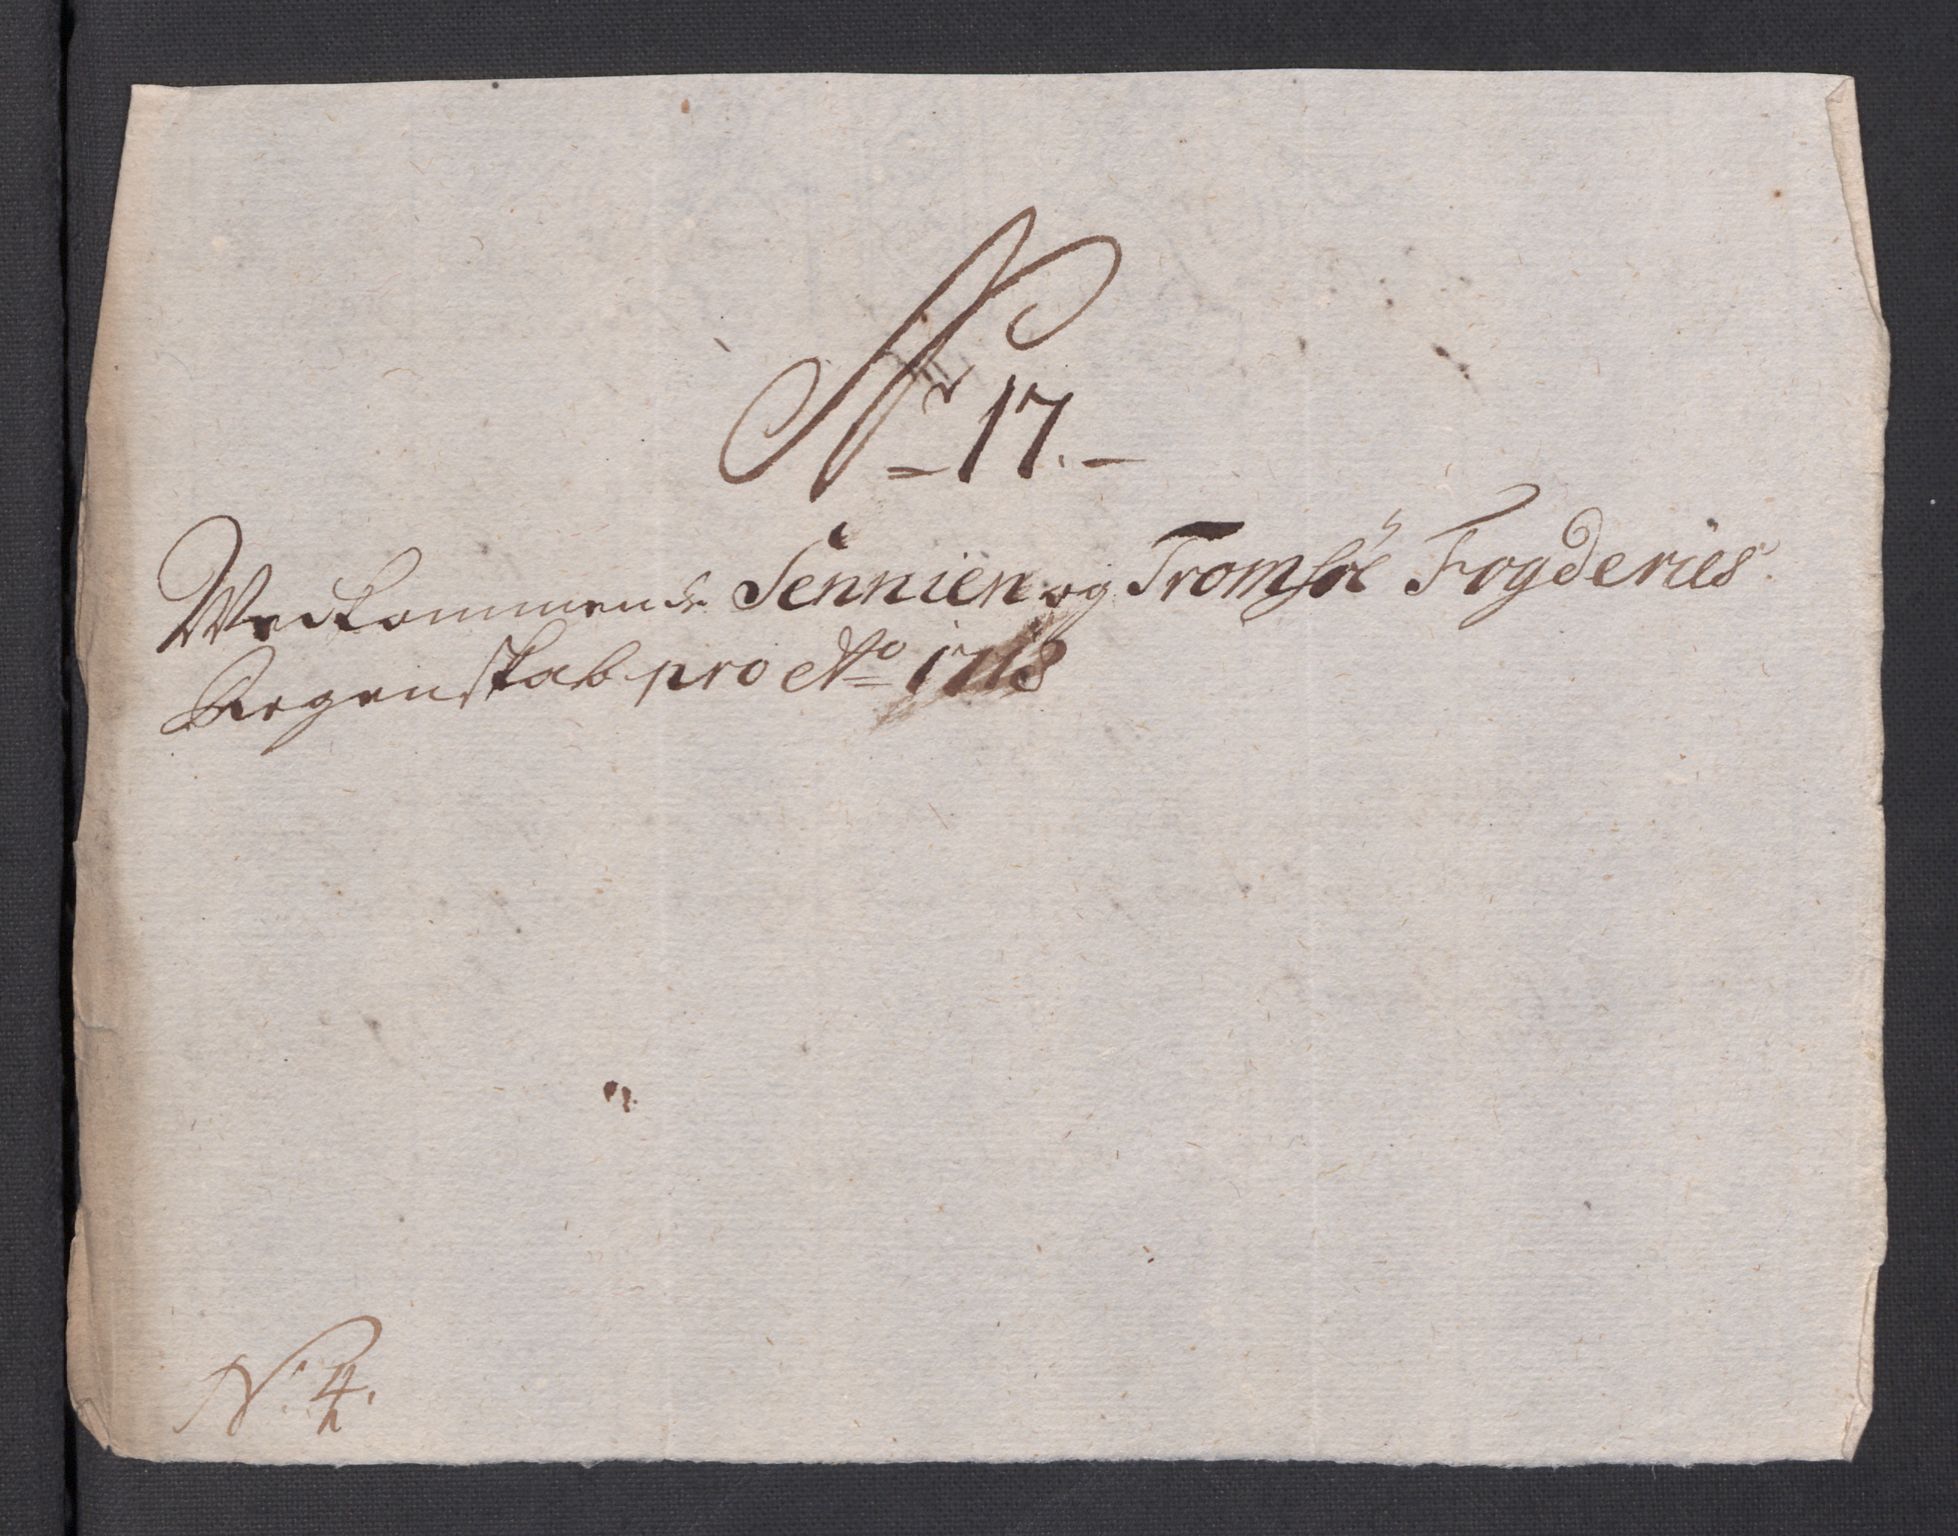 Nr 17.
Wedkommende Sennien og Tromsöe Fogderies
Regenskab pro Ao 1718
N: 4.